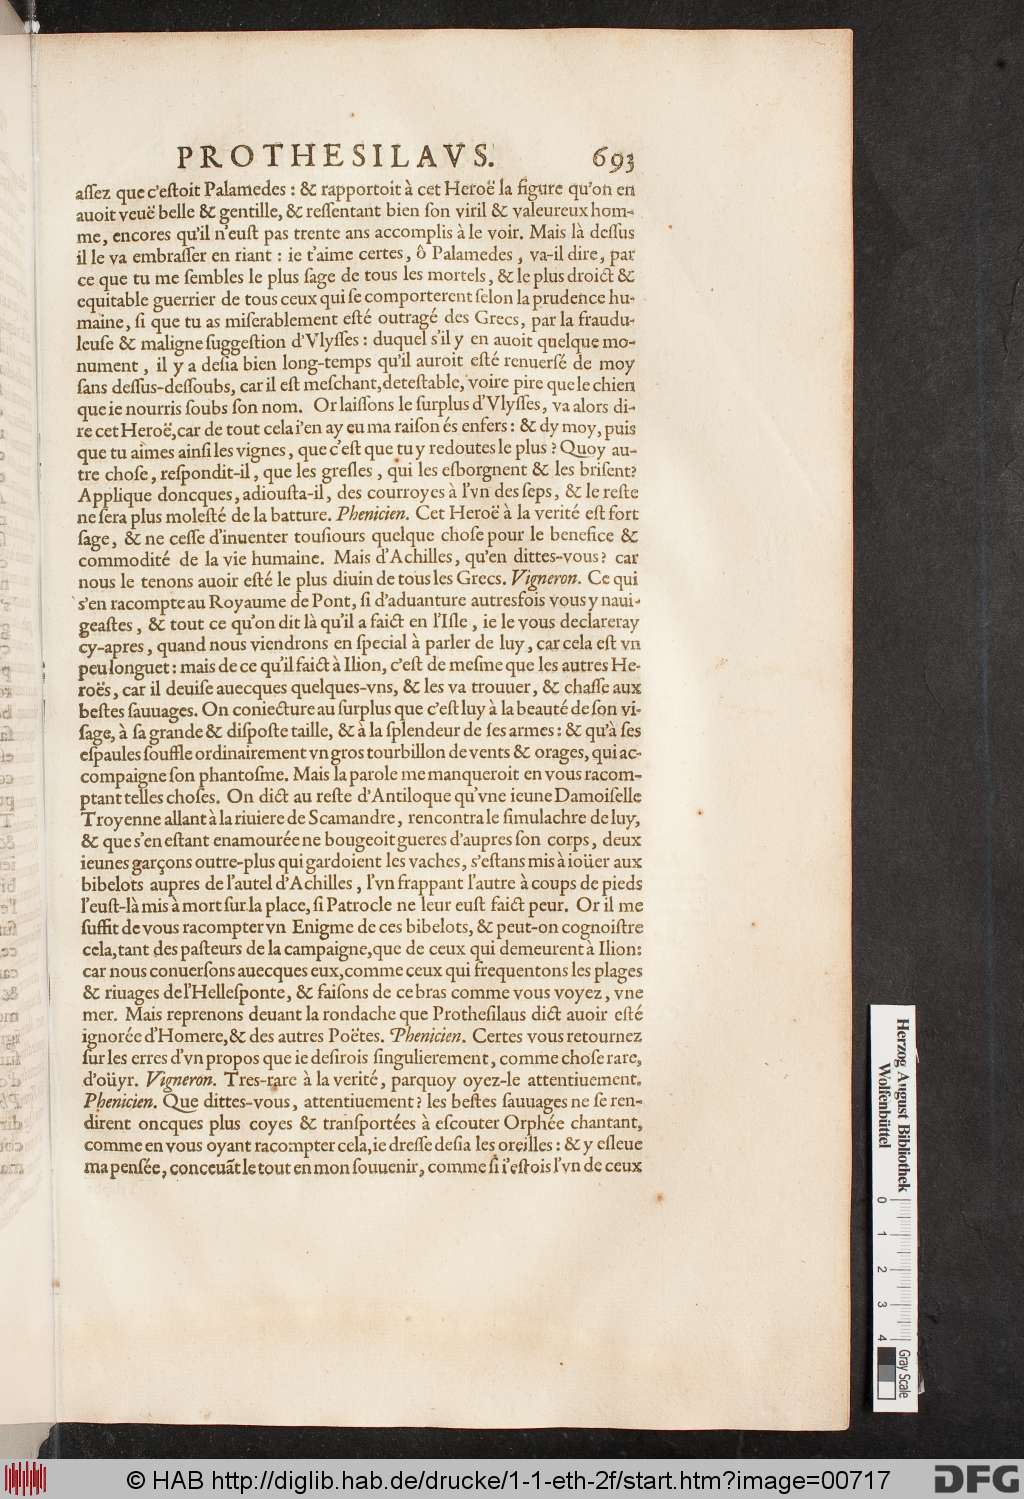 PROTHESILAVS. 693
aſſez que c'eſtoit Palamedes : & rapportoit à cet Heroë la figure qu'on en
auoit veuë belle & gentille, & reſſentant bien ſon viril & valeureux hom-
me, encores qu'il n'euſt pas trente ans accomplis à le voir. Mais là deſſus
il le va embraſſer en riant : ie t'aime certes, ô Palamedes, va-il dire, par
ce que tu me ſembles le plus ſage de tous les mortels, & le plus droict &
equitable guerrier de tous ceux qui ſe comporterent ſelon la prudence hu-
maine, ſi que tu as miſerablement eſté outragé des Grecs, par la fraudu-
leuſe & maligne ſuggeſtion d'Vlyſſes : duquel s'il y en auoit quelque mo-
nument, il y a deſia bien long-temps qu'il auroit eſté renuerſé de moy
ſans deſſus-deſſoubs, car il eſt meſchant, deteſtable, voire pire que le chien
que ie nourris ſoubs ſon nom. Or laiſſons le ſurplus d'Vlyſſes, va alors di-
re cet Heroë, car de tout cela i'en ay eu ma raiſon és enfers : & dy moy, puis
que tu aimes ainſi les vignes, que c'eſt que tu y redoutes le plus ? Quoy au-
tre choſe, reſpondit-il, que les greſles, qui les eſborgnent & les briſent?
Applique doncques, adiouſta-il, des courroyes à l'vn des ſeps, & le reſte
ne ſera plus moleſté de la batture. Phenicien. Cet Heroë à la verité eſt fort
ſage, & ne ceſſe d'inuenter touſiours quelque choſe pour le benefice &
commodité de la vie humaine. Mais d'Achilles, qu'en dittes-vous? car
nous le tenons auoir eſté le plus diuin de tous les Grecs. Vigneron. Ce qui
s'en racompte au Royaume de Pont, ſi d'aduanture autresfois vous y naui-
geaſtes, & tout ce qu'on dit là qu'il a faict en l'Iſle, ie le vous declareray
cy-apres, quand nous viendrons en ſpecial à parler de luy, car cela eſt vn
peu longuet : mais de ce qu'il faict à Ilion, c'eſt de meſme que les autres He-
roës, car il deuiſe auecques quelques-vns, & les va trouuer, & chaſſe aux
beſtes ſauuages. On coniecture au ſurplus que c'eſt luy à la beauté de ſon vi-
ſage, à ſa grande & diſpoſte taille, & à la ſplendeur de ſes armes : & qu'à ſes
eſpaules ſouffle ordinairement vn gros tourbillon de vents & orages, qui ac-
compaigne ſon phantoſme. Mais la parole me manqueroit en vous racom-
ptant telles choſes. On dict au reſte d'Antiloque qu'vne ieune Damoiſelle
Troyenne allant à la riuiere de Scamandre, rencontra le ſimulachre de luy,
& que s'en eſtant enamourée ne bougeoit gueres d'aupres ſon corps, deux
ieunes garçons outre-plus qui gardoient les vaches, s'eſtans mis à ioüer aux
bibelots aupres de l'autel d'Achilles, l'vn frappant l'autre à coups de pieds
l'euſt-là mis à mort ſur la place, ſi Patrocle ne leur euſt faict peur. Or il me
ſuffit de vous racompter vn Enigme de ces bibelots, & peut-on cognoiſtre
cela, tant des paſteurs de la campaigne, que de ceux qui demeurent à Ilion:
car nous conuerſons auecques eux, comme ceux qui frequentons les plages
& riuages de l'Helleſponte, & faiſons de ce bras comme vous voyez, vne
mer. Mais reprenons deuant la rondache que Protheſilaus dict auoir eſté
ignorée d'Homere, & des autres Poëtes. Phenicien. Certes vous retournez
ſur les erres d'vn propos que ie deſirois ſingulierement, comme choſe rare,
d'oüyr. Vigneron. Tres-rare à la verité, parquoy oyez-le attentiuement.
Phenicien. Que dittes-vous, attentiuement? les beſtes ſauuages ne ſe ren-
dirent oncques plus coyes & tranſportées à eſcouter Orphée chantant,
comme en vous oyant racompter cela, ie dreſſe deſia les oreilles : & y eſleue
ma penſée, conceuãt le tout en mon ſouuenir, comme ſi i'eſtois l'vn de ceux
Herzog August Bibliothek
Wolfenbüttel
0 1 2 3 4
Gray Scale
© HAB http://diglib.hab.de/drucke/1-1-eth-2f/start.htm?image=00717
DFG